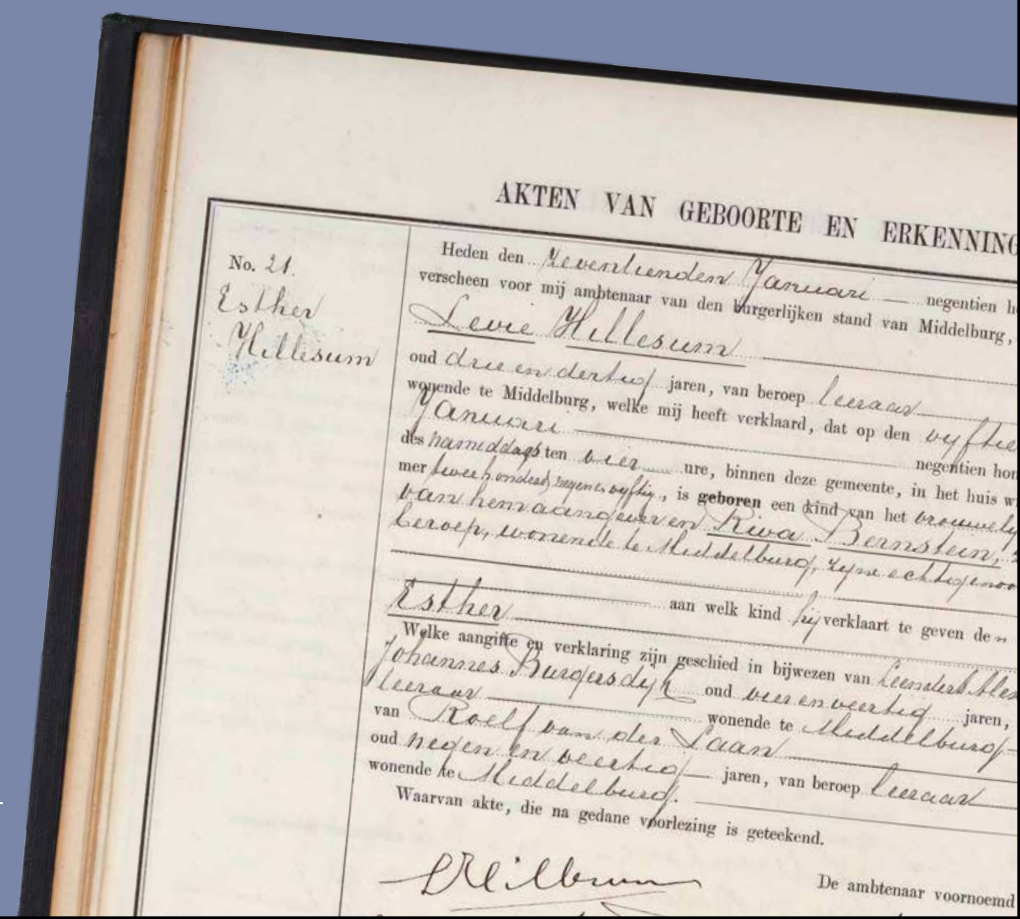 AKTEN VAN GEBOORTE EN ERKENNING
No. 21.
Esther
Hillesum
Heden den zeventienden Januari — negentien h
verscheen voor mij ambtenaar van den burgerlijken stand van Middelburg,
Levie Hillesum
oud drie en dertig jaren, van beroep leeraar
wonende te Middelburg, welke mij heeft verklaard, dat op den vyftie
Januari — negentien hon
des namiddags ten vier ure, binnen deze gemeente, in het huis w
mer tweehonderd negen en vyftig, is geboren een kind van het vrouwely
van hem aangever en Riva Bernstein,
beroep, wonende te Middelburg, zyne echtgenoo
Esther aan welk kind hij verklaart te geven den
Welke aangifte en verklaring zijn geschied in bijwezen van Leendert
Johannes Burgersdyk oud vier en veertig jaren,
leeraar wonende te Middelburg
van Roelf van der Laan
oud negen en veertig jaren, van beroep leeraar
wonende te Middelburg.
Waarvan akte, die na gedane voorlezing is geteekend.
De ambtenaar voornoemd